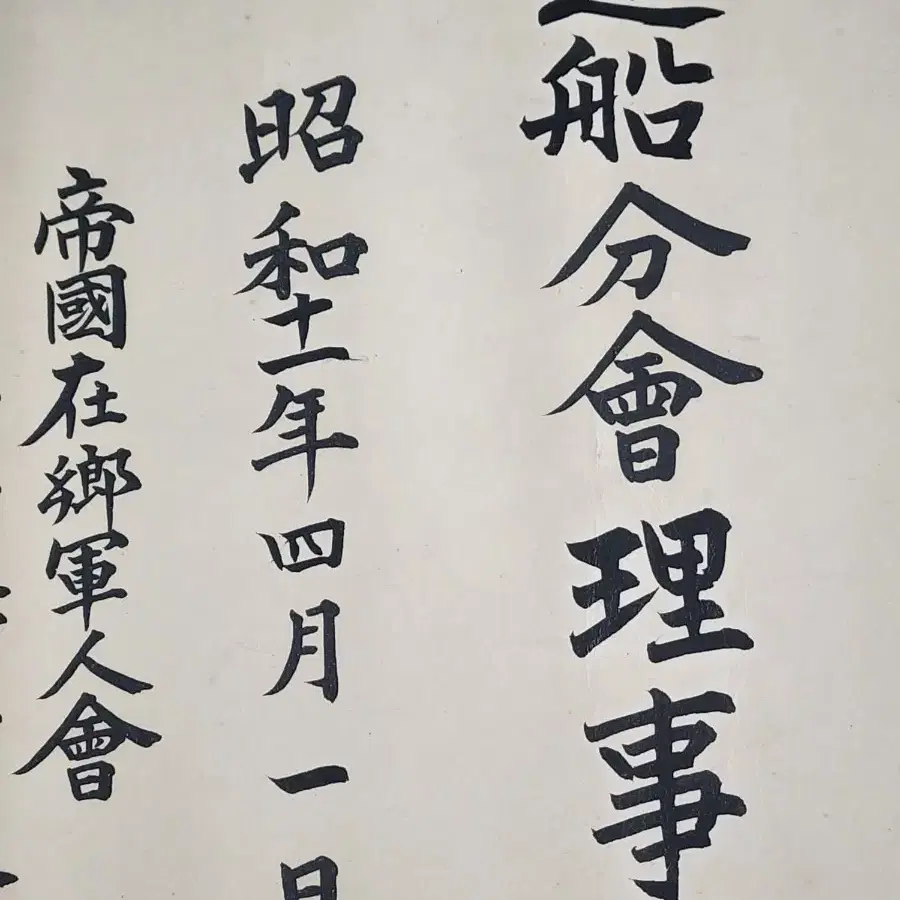 船分會理事
昭和十一年四月一日
帝國在鄕軍人會